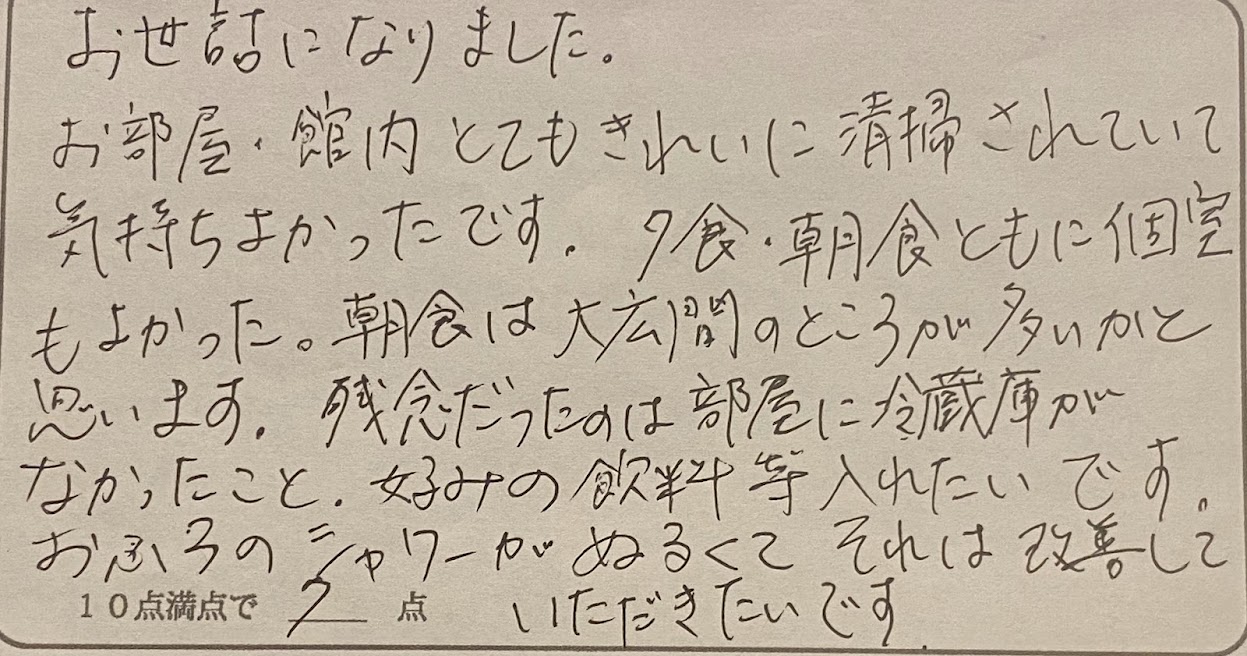 お世話になりました。
お部屋・館内とてもきれいに清掃されていて
気持ちよかったです。夕食・朝食ともに個室
もよかった。朝食は大広間のところが多いかと
思います。残念だったのは部屋に冷蔵庫が
なかったこと。好みの飲料等入れたいです。
お風ろのシャワーがぬるくてそれは改善して
１０点満点で 7 点 いただきたいです.